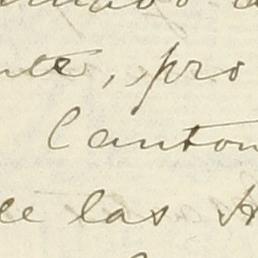 nte, pro
Canton
de las H